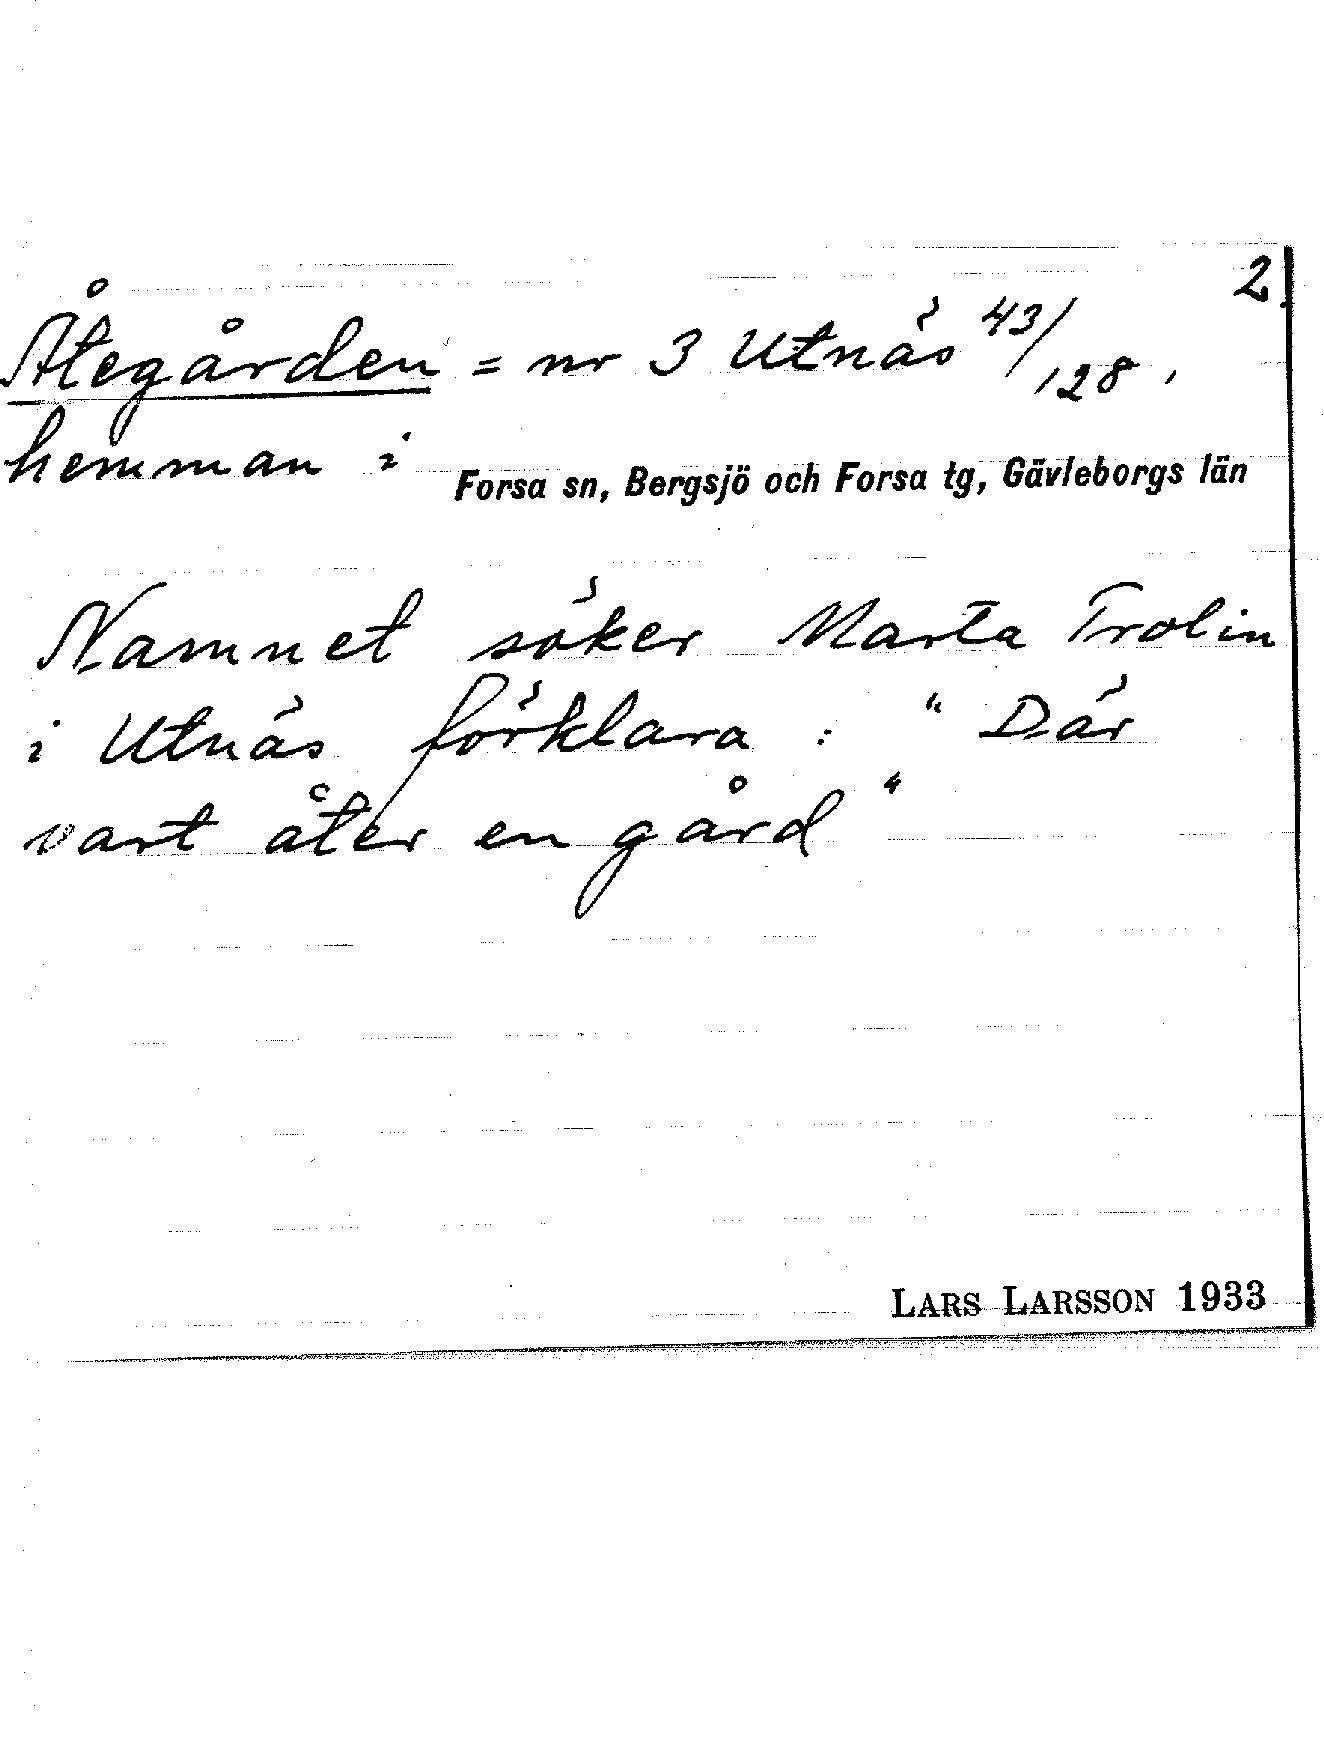 2.
Åtegården = nr 3 Utnäs 43/128,
hemman i Forsa sn, Bergsjö och Forsa tg, Gävleborgs län
Namnet söker Marta Trolin
i Utnäs förklara: "Där
vart åter en gård"
LARS LARSSON 1933